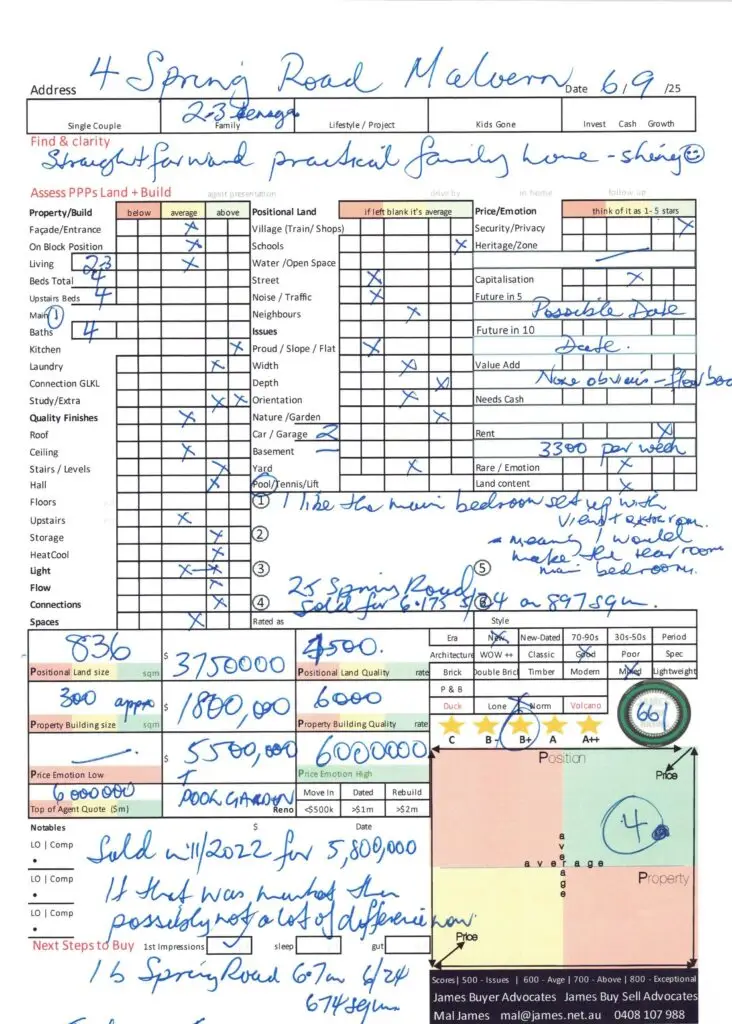 Address 4 Spring Road Malvern Date 6/9/25
2-3 teenage
Single Couple Family Lifestyle / Project Kids Gone Invest Cash Growth
Find & clarity
Straightforward practical family home - shiny ☺
Assess PPPs Land + Build agent presentation drive by in home follow up
Property/Build below average above Positional Land if left blank it's average Price/Emotion think of it as 1- 5 stars
Façade/Entrance X Village (Train/ Shops) Security/Privacy X
On Block Position X Schools X Heritage/Zone
Living 2-3 X Water /Open Space —
Beds Total 4 Street X Capitalisation X
Upstairs Beds 4 Noise / Traffic X Future in 5
Main 1 Neighbours X Possible Date
Baths 4 Issues Future in 10
Kitchen X Proud / Slope / Flat X Date.
Laundry X Width X Value Add
Connection GLKL Depth X None obvious -
Study/Extra X X Orientation X Needs Cash
Quality Finishes X Nature /Garden X
Roof Car / Garage 2 Rent X
Ceiling X Basement — 3300 per week
Stairs / Levels X Yard X Rare / Emotion X
Hall X Pool/Tennis/Lift Land content X
Floors ① I like the main bedroom set up with
Upstairs X view + extra room.
Storage X ② - meaning I would
HeatCool X make the rear room
Light X X ③ ⑤ main bedroom.
Flow X 25 Spring Road
Connections X ④ Sold for 6.175 5/24 on 897 sqm. ⑥
Spaces X Rated as Style
836 $ 3750000 4500.
Positional Land size sqm Positional Land Quality rate
300 appro $ 1800,000 6000
Property Building size sqm Property Building Quality rate
—. $ 5500,000 6000000
Price Emotion Low Price Emotion High
6000000 + POOL GARDEN
Top of Agent Quote ($m) Reno
Move In Dated Rebuild
<$500k >$1m >$2m
Era New X New-Dated 70-90s 30s-50s Period
Architecture WOW ++ Classic Good X Poor Spec
Brick Double Bric Timber Modern Mixed X Lightweight
P & B
Duck Lone X Norm Volcano
661
C B - B+ A A++
Position
Price
4
average
average
Property
Price
Notables $ Date
LO | Comp Sold in 11/2022 for 5,800,000
LO | Comp If that was market then
LO | Comp possibly not a lot of difference now.
Next Steps to Buy 1st Impressions sleep gut
16 Spring Road 6.7m 6/24
674 sqm
Scores| 500 - Issues | 600 - Avge | 700 - Above | 800 - Exceptional
James Buyer Advocates James Buy Sell Advocates
Mal James mal@james.net.au 0408 107 988